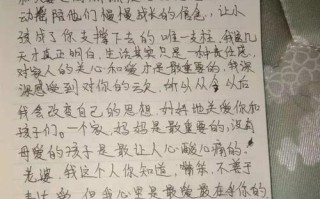 动 陪他们慢慢成长的 色，让小
孩成了你支撑下去的唯一支柱，我这几
天才真正明白，生活其实只是一种责任感，
对家人的关心和爱才是最重要的，我深
深感受到对你的亏欠，所以从今以后
我会改变自己的思想，好好地关爱你和
孩子们。一个家，妈妈是最重要的，没有
母爱的孩子是最让人心酸心痛的，
老婆，我这个人你知道， 笨，不善于
表达 ，但我心里是最爱最在乎你的